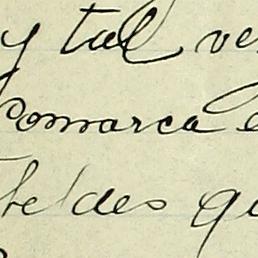 y tal ve
comarca e
beldes qu